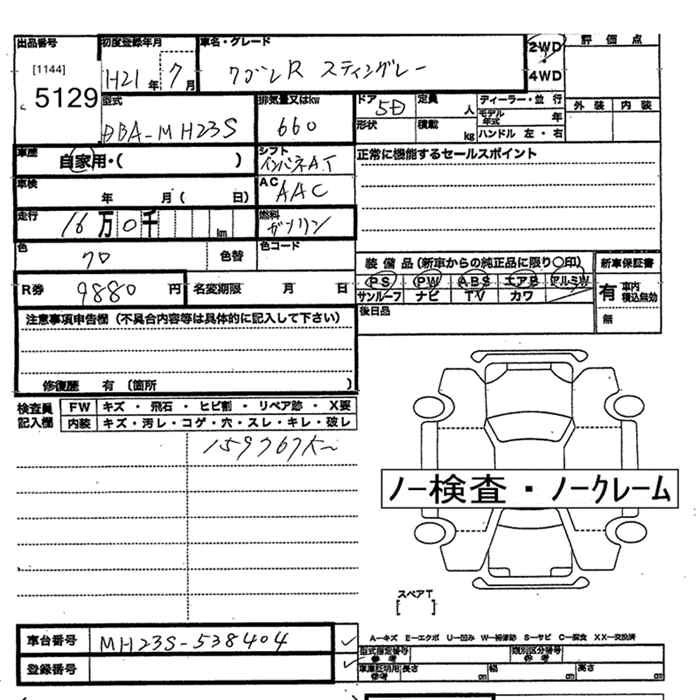 出品番号 初度登録年月 車名・グレード 2WD 評価点
[1144] H21年 7月 ワゴンR スティングレー 4WD
5129 型式 排気量又はkw ドア 5D 定員 人 ディーラー・並行 外装 内装
DBA-MH23S 660 形状 積載 kg モデル年式 年
ハンドル 左・右
車歴 自家用・( ) シフト インパネA.T 正常に機能するセールスポイント
車検 年 月( 日) AC AAC
走行 16万0千 km 燃料 ガソリン
色 クロ 色替 色コード 装備品(新車からの純正品に限り○印) 新車保証書
R券 9880円 名変期限 月 日 PS PW ABS エアB アルミW 有 車内 積込無効
サンルーフ ナビ TV カワ
注意事項申告欄(不具合内容等は具体的に記入して下さい) 後日品 無
修復歴 有 〔箇所 〕
検査員 FW キズ・飛石・ヒビ割・リペア跡・X要
記入欄 内装 キズ・汚レ・コゲ・穴・スレ・キレ・破レ
159767K
ノー検査・ノークレーム
スペアT
[ ]
車台番号 MH23S-538404 A-キズ E-エクボ U-凹み W-補修跡 S-サビ C-腐食 XX-交換済
型式指定番号 参考 類別区分番号 参考
登録番号 車庫証明用 参考 長さ cm 幅 cm 高さ cm